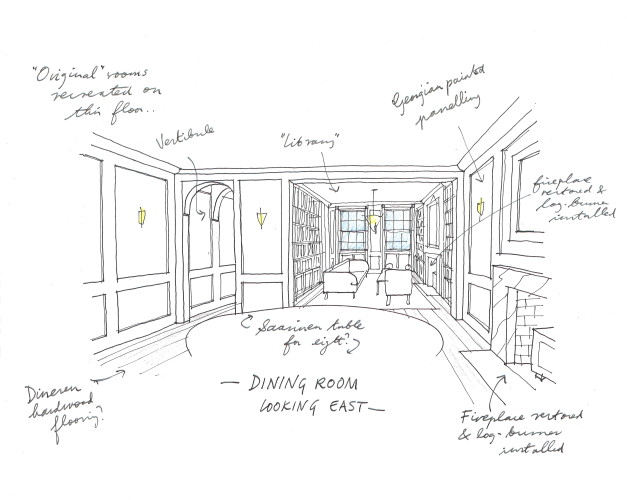 "Original" rooms
recreated on
this floor..
Vestibule
"Library"
Georgian painted
panelling
fireplace
restored &
log-burner
installed
Saarinen table
for eight?
Dinesen
hardwood
flooring?
— DINING ROOM
LOOKING EAST —
Fireplace restored
& log-burner
installed